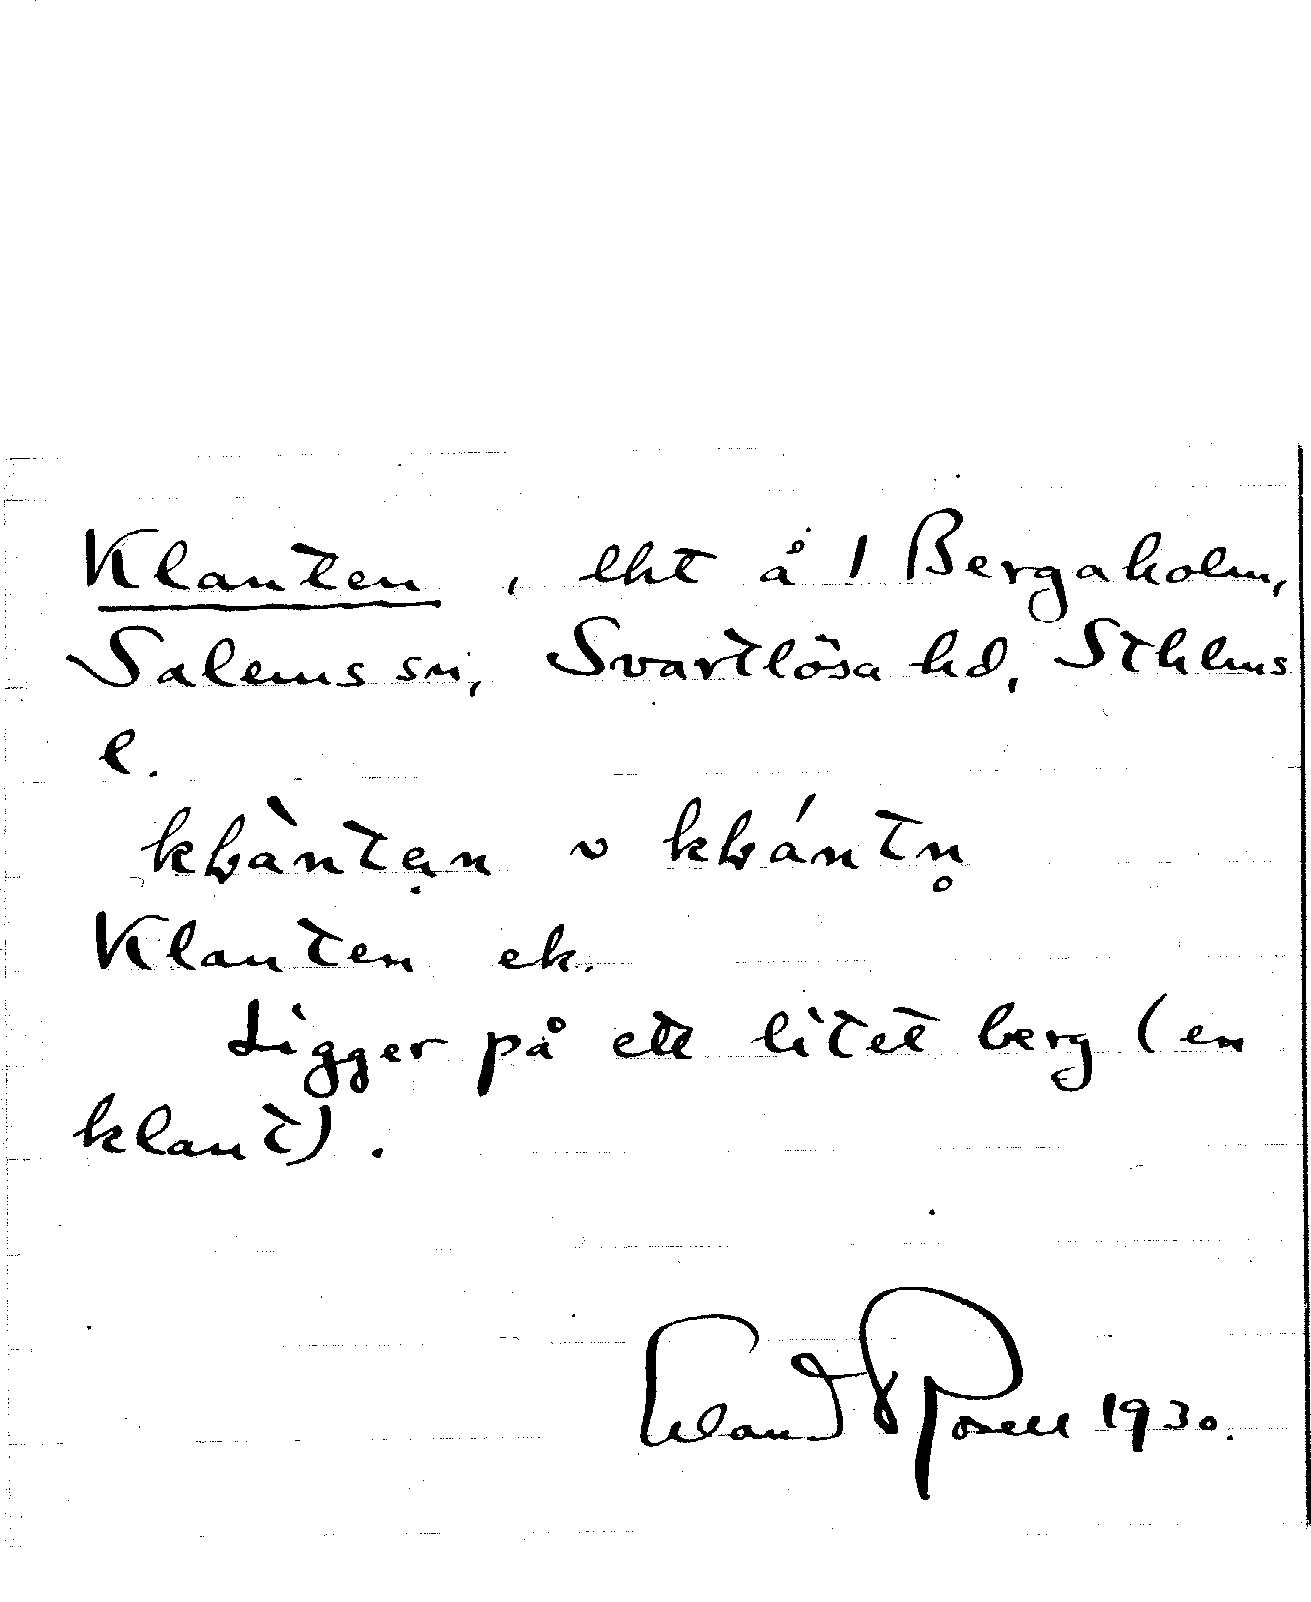 Klanten, lht å 1 Bergaholm,
Salems sn, Svartlösa hd, Sthlms
l.
Klanten ek.
Ligger på ett litet berg (en
klant).
Erland Rosell 1930.